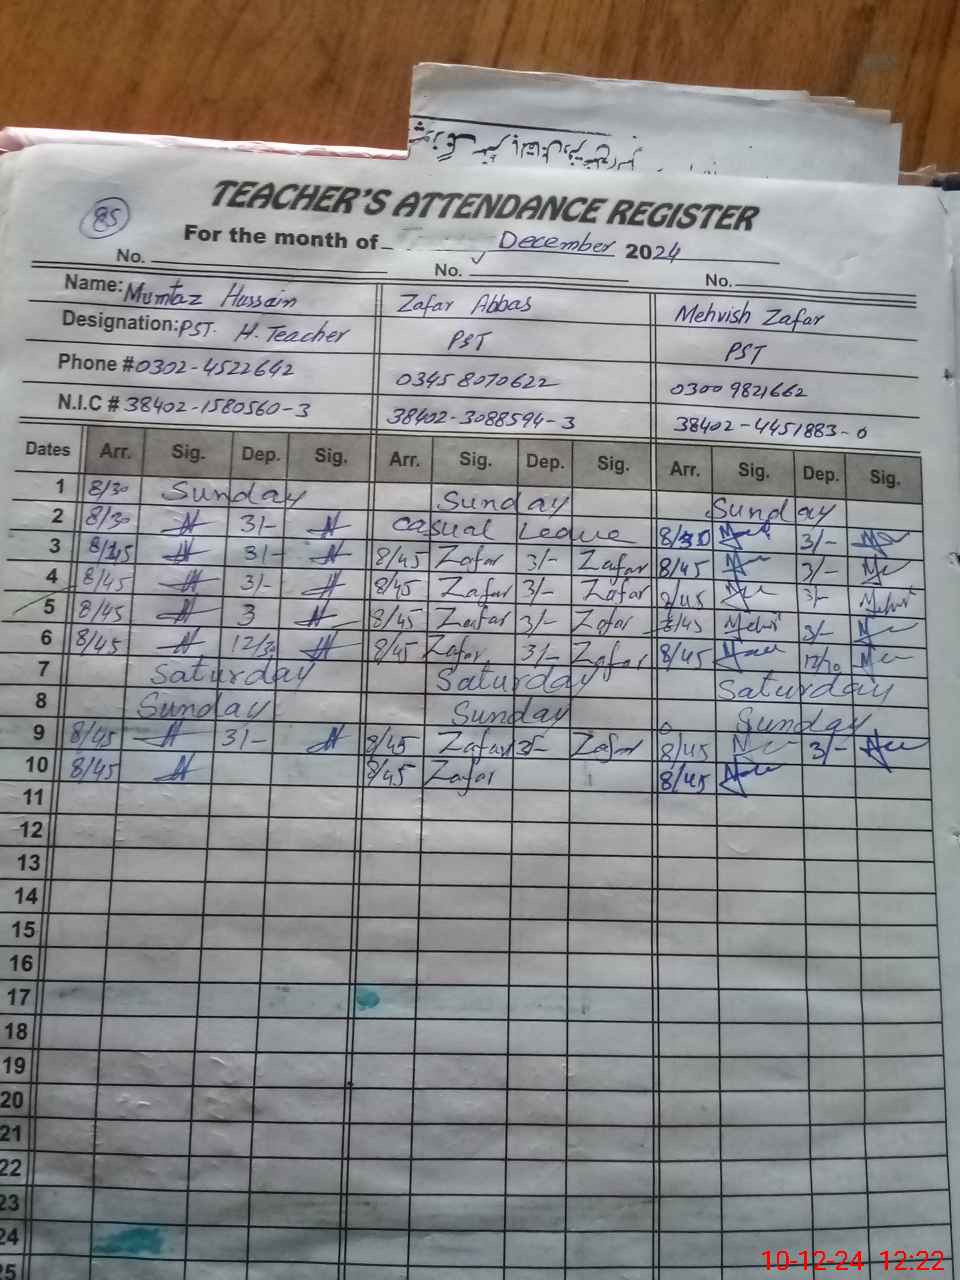 TEACHER'S ATTENDANCE REGISTER
85
For the month of December 2024
No. No. No.
Name: Mumtaz Hussain Zafar Abbas Mehvish Zafar
Designation: PST. H. Teacher PST PST
Phone # 0302-4522642 0345 8070622 0300 9821662
N.I.C # 38402-1580560-3 38402-3088594-3 38402-4451883-0
Dates Arr. Sig. Dep. Sig. Arr. Sig. Dep. Sig. Arr. Sig. Dep. Sig.
1 8/30 Sunday Sunday Sunday
2 8/30 3/- Casual Leave 8/30 3/-
3 8/45 3/- 8/45 Zafar 3/- Zafar 8/45 3/-
4 8/45 3/- 8/45 Zafar 3/- Zafar 8/45 3/-
5 8/45 3 8/45 Zafar 3/- Zafar 8/45 3/-
6 8/45 12/30 8/45 Zafar 3/- Zafar 8/45
7 Saturday Saturday Saturday
8 Sunday Sunday Sunday
9 8/45 3/- 8/45 Zafar 3/- Zafar 8/45 3/-
10 8/45 8/45 Zafar 8/45
11
12
13
14
15
16
17
18
19
20
21
22
23
24
25
10-12-24 12:22